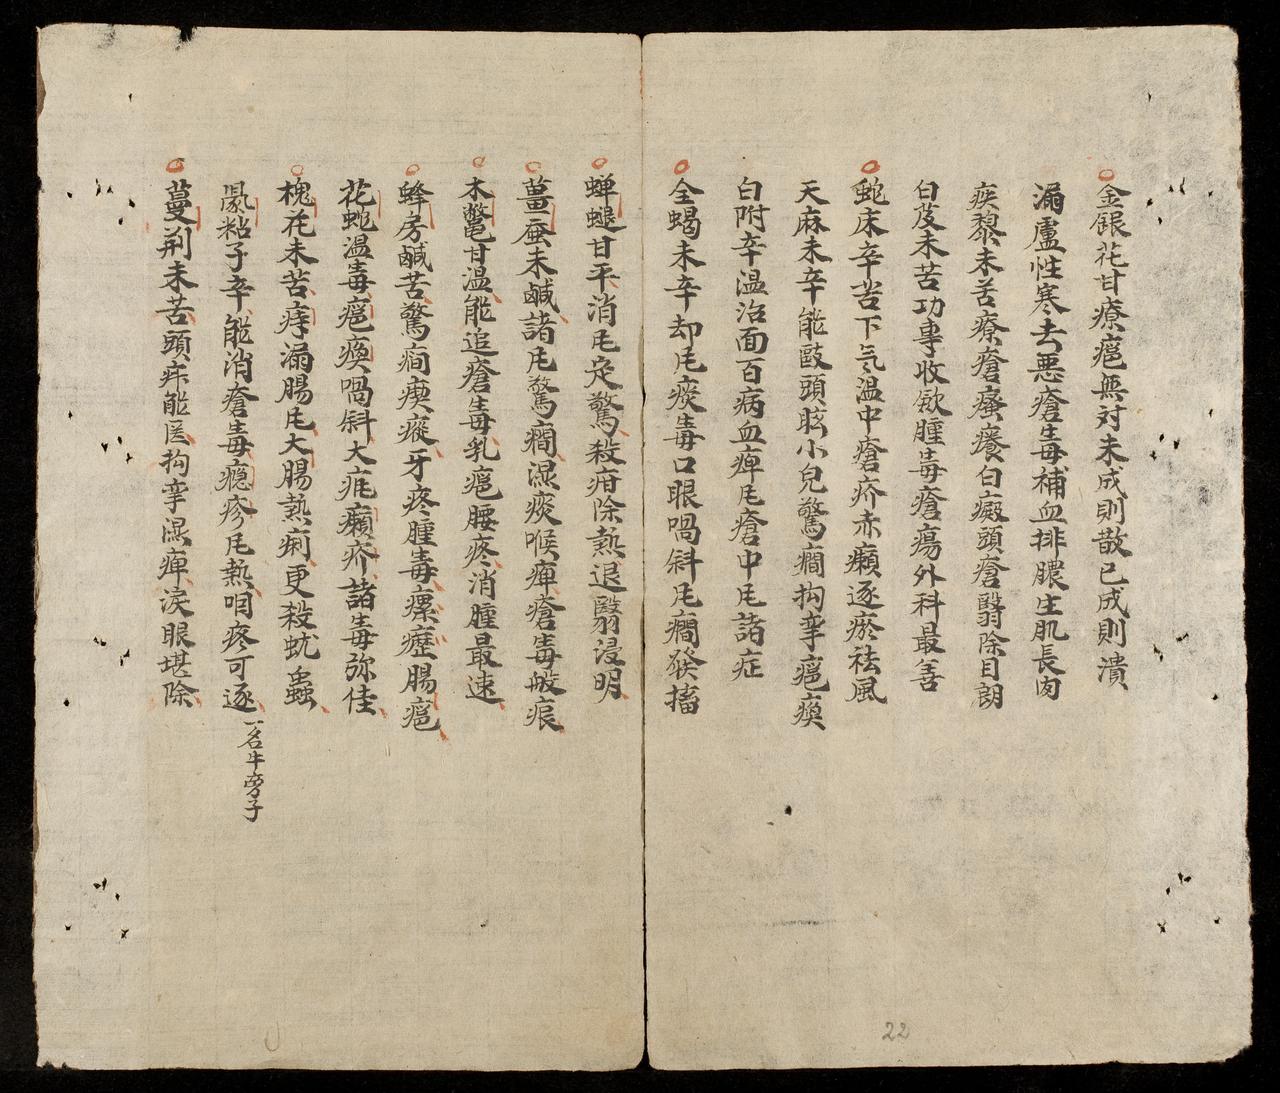 金銀花甘療瘟無对未成則散已成則潰
漏蘆性寒去悪瘡毒補血排膿生肌長肉
疾藜未苦療瘡瘙癢白癜頭瘡翳除目朗
白芨未苦功專收歛腫毒瘡瘍外科最善
虵床辛苦下气温中瘡疥赤癩逐瘀祛風
天麻未辛能敺頭眩小兒驚癇拘挛瘟瘓
白附辛温治面百病血痺瘡中諸症
全蝎未辛却痰毒口眼喎斜癇發搐
蟬蜕甘平消定驚殺疳除熱退翳浸明
薑蚕未鹹諸驚癇濕痰喉痺瘡毒般痕
木鼈甘温能追瘡毒乳瘟腰疼消腫最速
蜂房鹹苦驚癎瘈瘲牙疼腫毒瘰癧腸瘟
花虵温毒瘟瘓喎斜大痲癩疥諸毒弥佳
槐花未苦痔漏腸大腸熱痢更殺蚘蟲
鼠粘子辛能消瘡毒癮疹熱咽疼可逐
一名牛旁子
蔓荆未苦頭疼能医拘挛濕痺淚眼堪除
22